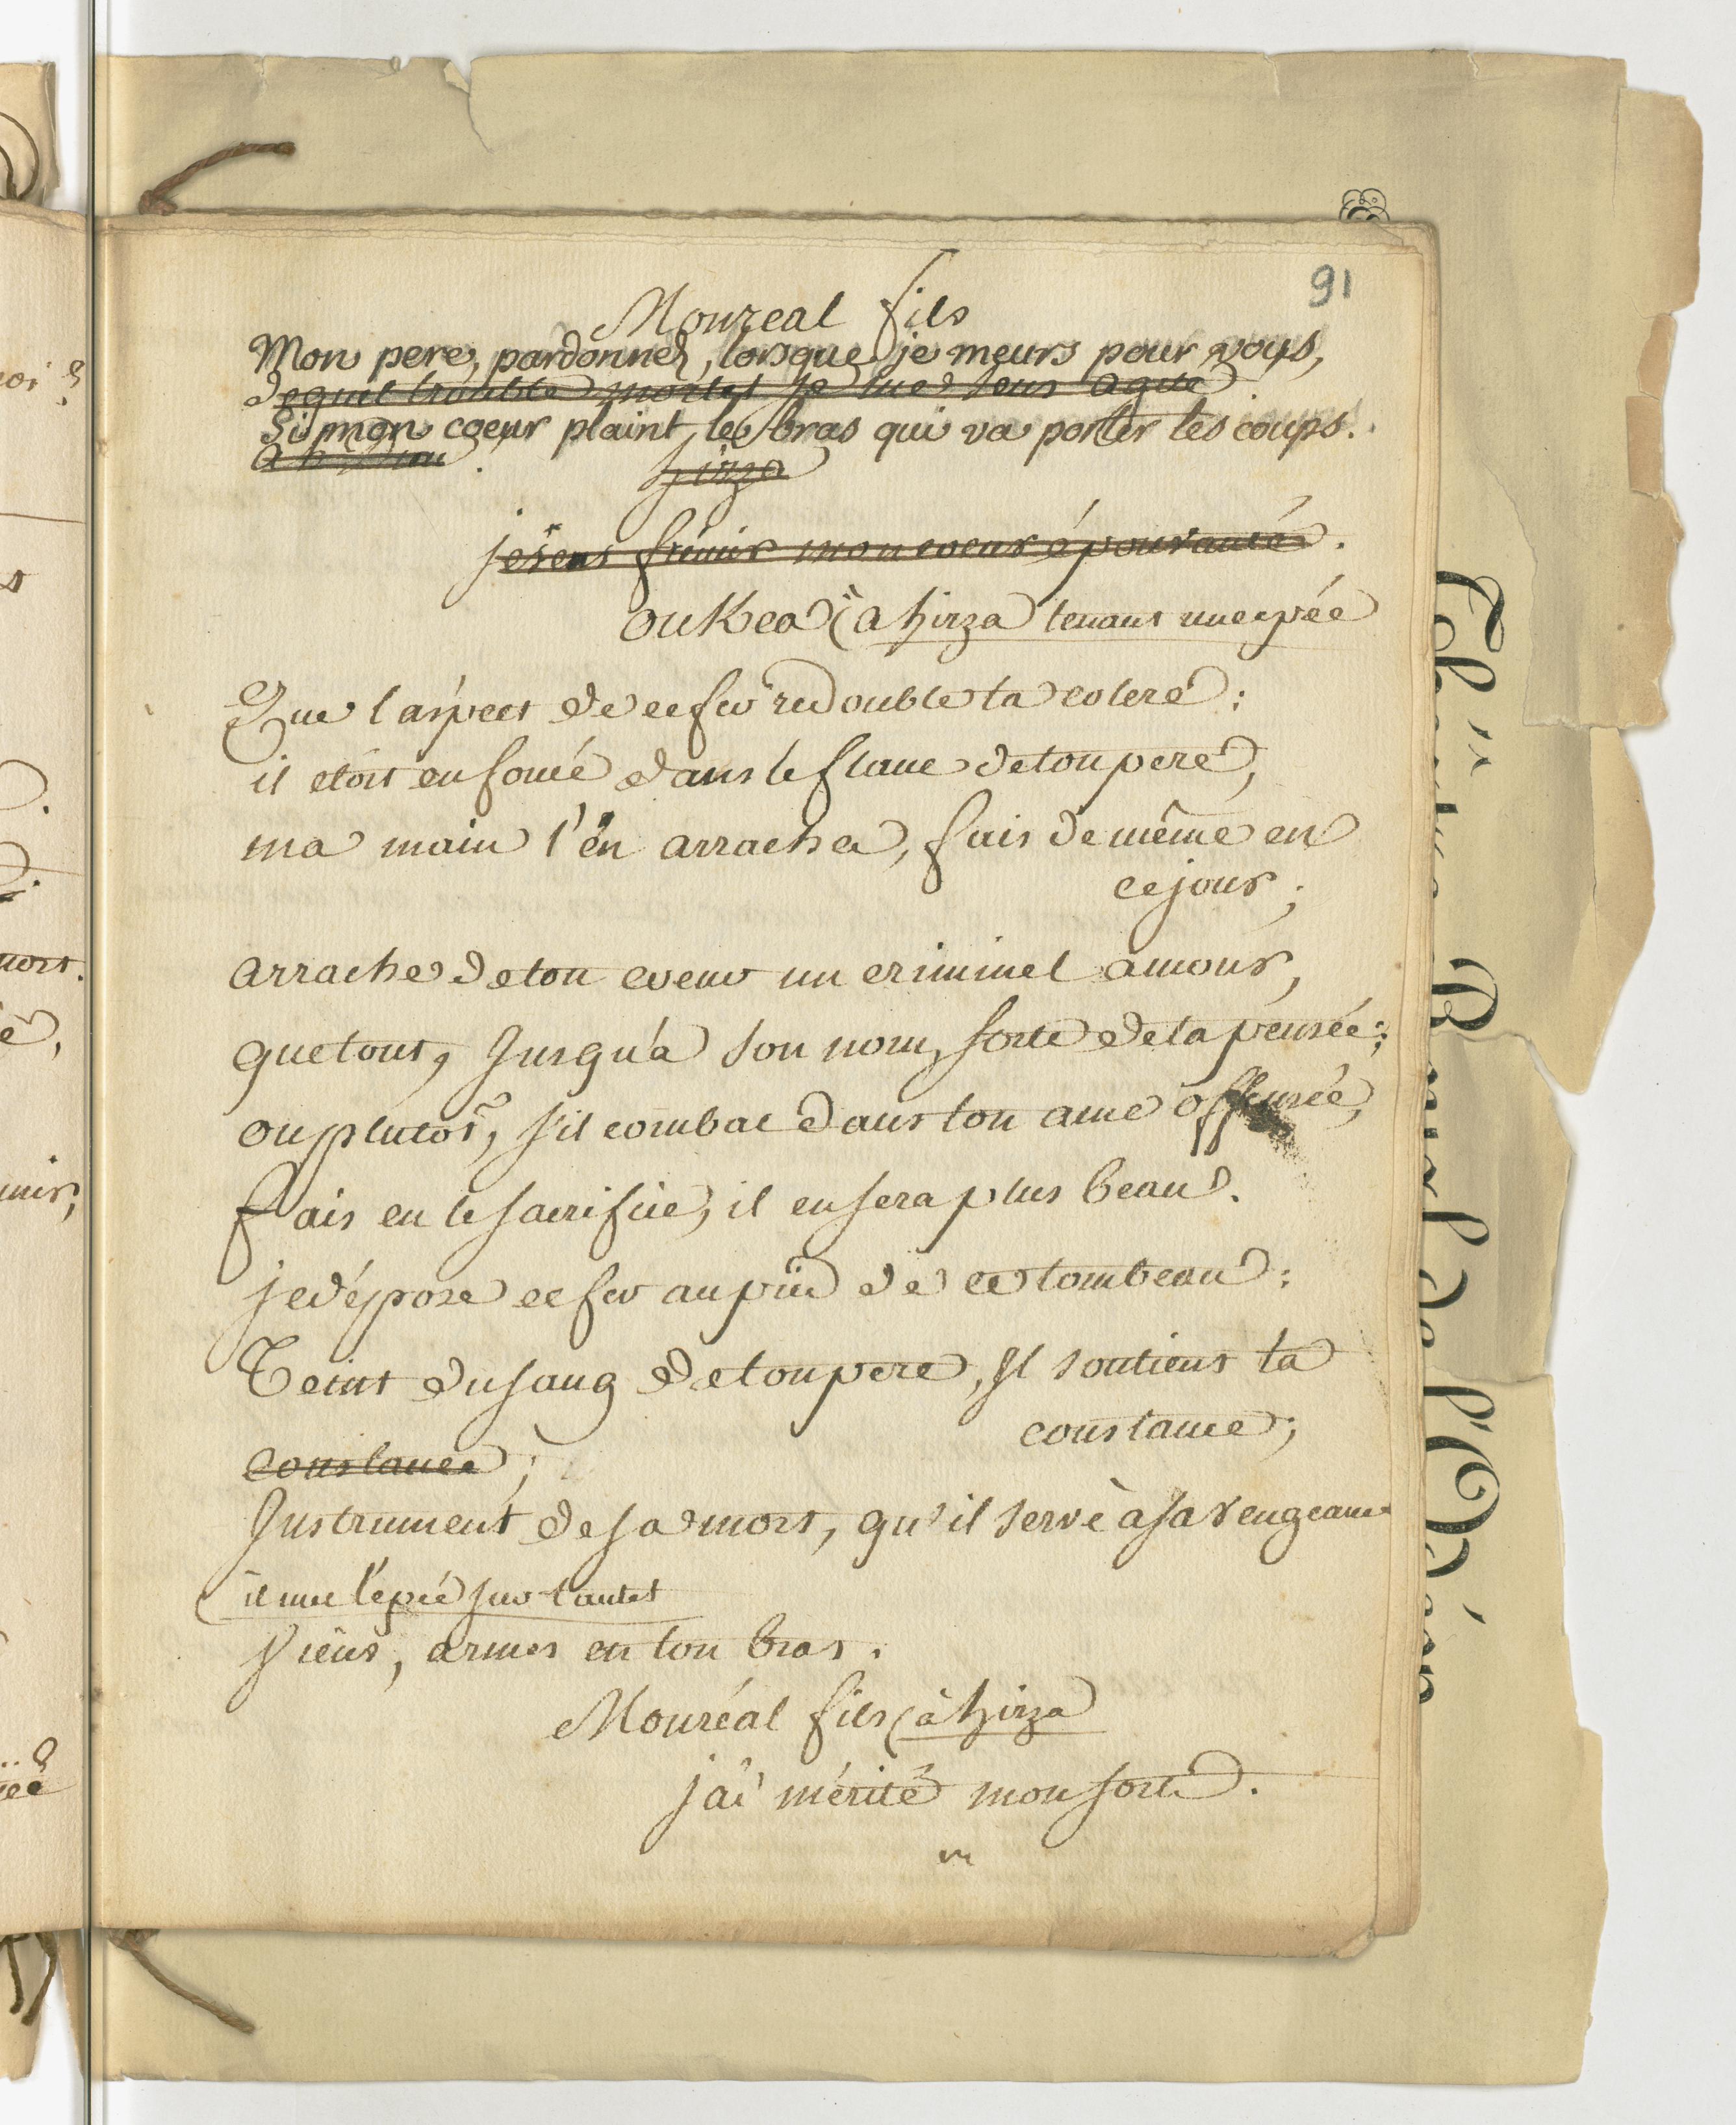 91
Monreal fils
Mon pere, pardonnez, lorsque je meurs pour vous,
de quel trouble mortel je me sens agité
Si mon coeur plaint le bras qui va porter les coups.
hirza
je sens frémir mon coeur épouvanté.
oukea (a hirza tenant une epée
Que l'aspect de ce fer redouble ta colere:
il etoit enfoncé dans le flanc de ton pere,
ma main l'en arracha, fais de même en
ce jour;
arrache de ton coeur un criminel amour,
que tout, jusqu'à son nom, sorte de ta pensée;
ou plutot, s'il combat dans ton ame offensée,
fais en le sacrifice, il en sera plus beau.
je dépose ce fer au pied de ce tombeau:
Teint du sang de ton pere, Il soutient ta
constance;
constance;
Instrument de sa mort, qu'il serve à sa vengeance
(il met l'epée sur l'autel
Viens, armes en ton bras.
Monréal fils (à hirza
j'ai mérité mon sort.